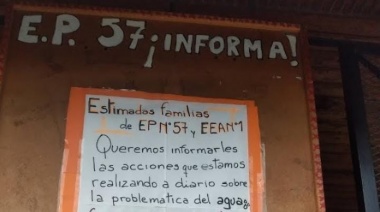 E.P. 57 ¡INFORMA!
Estimadas familias
de EPNº57 y EEANº1
Queremos informarles
las acciones que estamos
realizando a diario sobre
la problematica del agua,